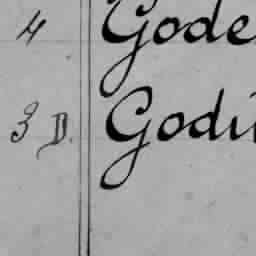 4 Gode
3 D. Godi